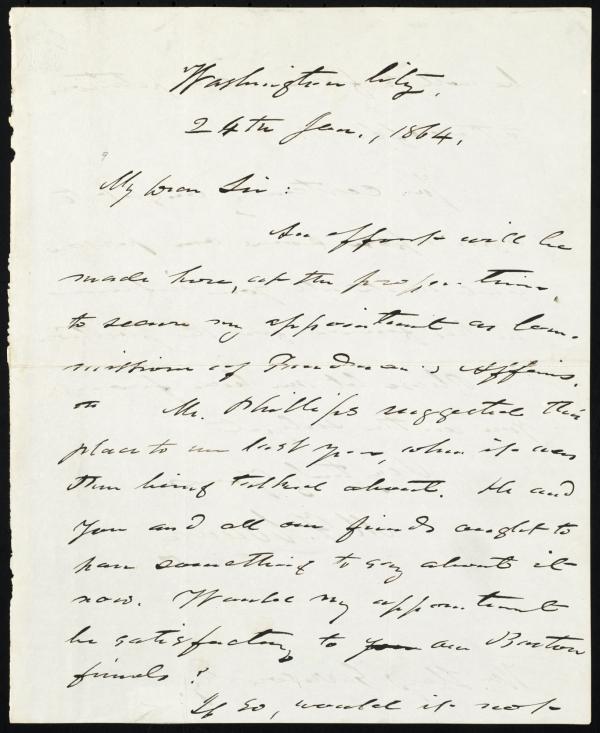 Washington City,
24th Jan., 1864.
My Dear Sir:
An effort will be
made here, at the proper time
to secure my appointment as Com-
missioner of Freedmen's Affairs.
Mr. Phillips suggested this
place to me last year, when it was
then being talked about. He and
you and all our friends ought to
have something to say about it
now. Would my appointment
be satisfactory to our Boston
friends?
If so, would it not